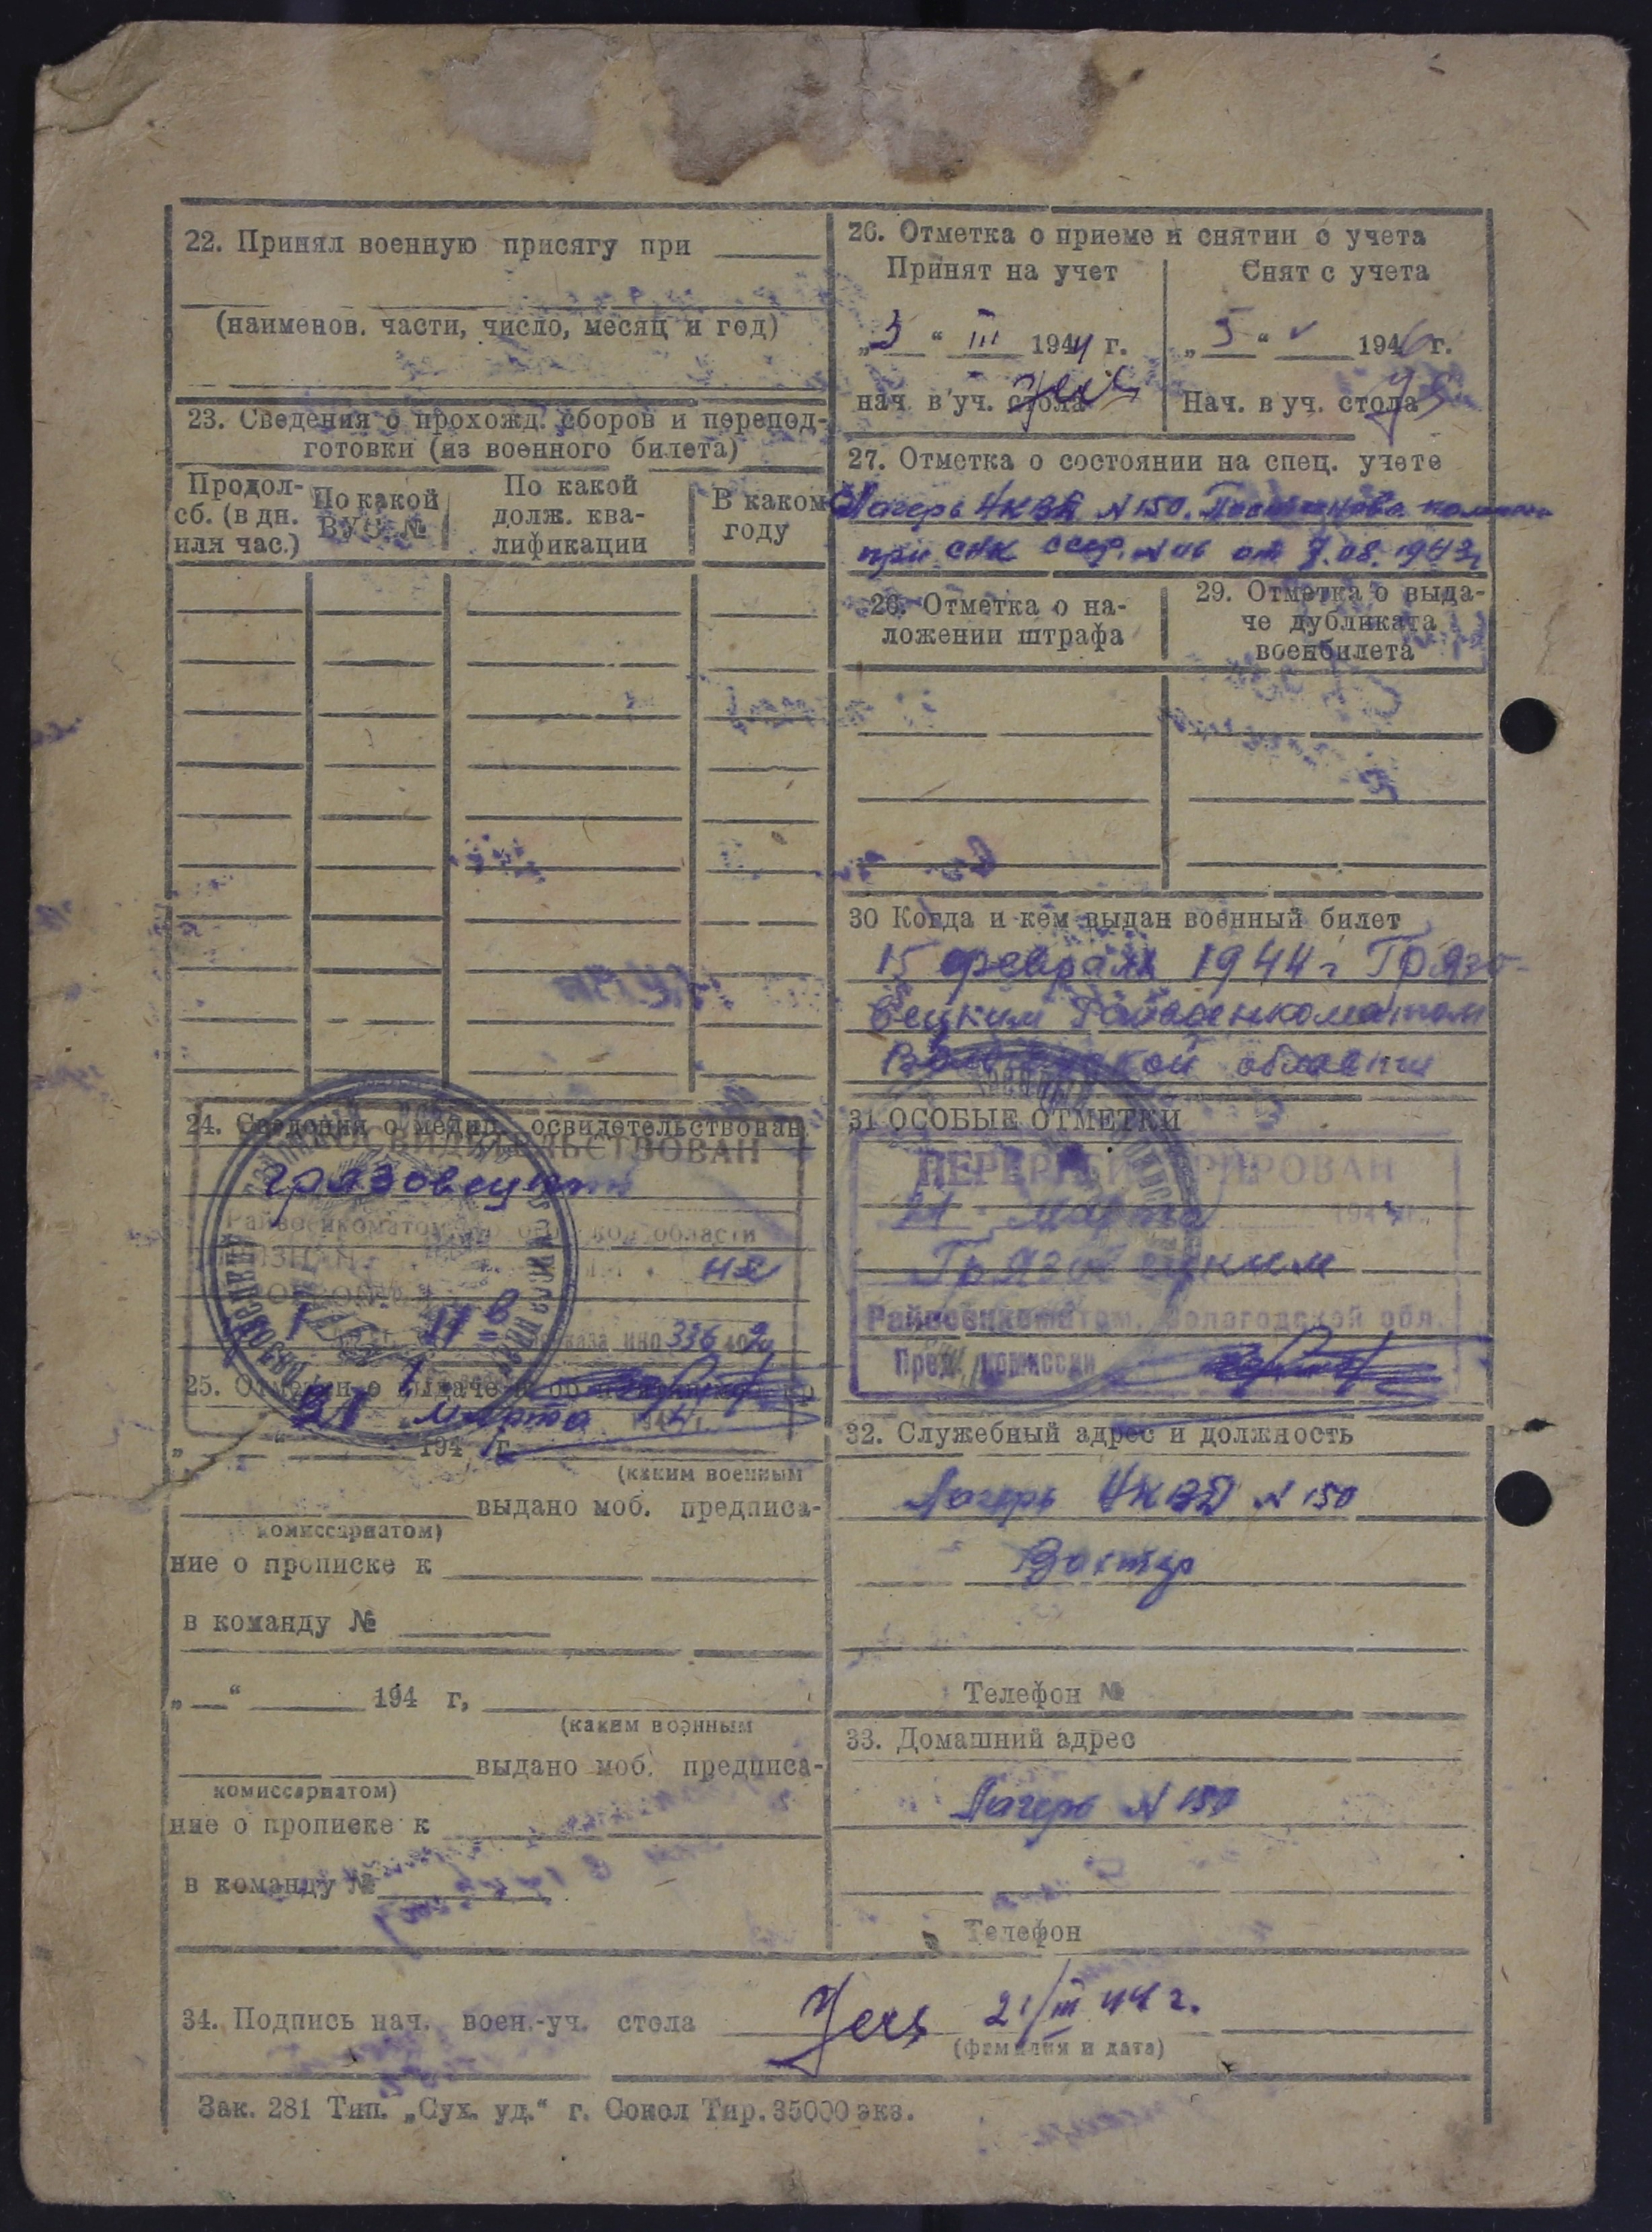 22. Принял военную присягу при
(наименов. части, число, месяц и год)
23. Сведения о прохожд. сборов и перепод-
готовки (из военного билета)
Продол-
сб. (в дн.
или час.)
По какой
ВУС №
По какой
долж. ква-
лификации
В каком
году
24. Сведения о медиц. освидетельствован.
Грязовецким
Райвоенкоматом области
не
336
21 марта
25.
194 г.
(каким военным
выдано моб. предписа-
комиссариатом)
ние о прописке к
в команду №
„ “ 194 г,
(каким военным
выдано моб. предписа-
комиссариатом)
ние о прописке к
в команду №
26. Отметка о приеме и снятии с учета
Принят на учет
„3“ III 1944 г.
нач. в уч. стола
Снят с учета
„5“ V 1946 г.
Нач. в уч. стола
27. Отметка о состоянии на спец. учете
Лагерь НКВД N 150.
при СНК СССР. от 7.08.1943г
28. Отметка о на-
ложении штрафа
29. Отметка о выда-
че дубликата
военбилета
30 Когда и кем выдан военный билет
15 февраля 1944 г Грязо-
вецким Райвоенкоматом
Вологодской области
31 ОСОБЫЕ ОТМЕТКИ
ПЕРЕРЕГИСТРИРОВАН
21 марта 194
Грязовецким
Райвоенкоматом, Вологодской обл.
Пред. комиссии
32. Служебный адрес и должность
Лагерь НКВД N 150
Вахтер
Телефон №
33. Домашний адрес
Лагерь N 150
Телефон
34. Подпись нач. воен.-уч. стола 21/III 44 г.
(фамилия и дата)
Зак. 281 Тип. „Сух. уд.“ г. Сокол Тир. 35000 экз.